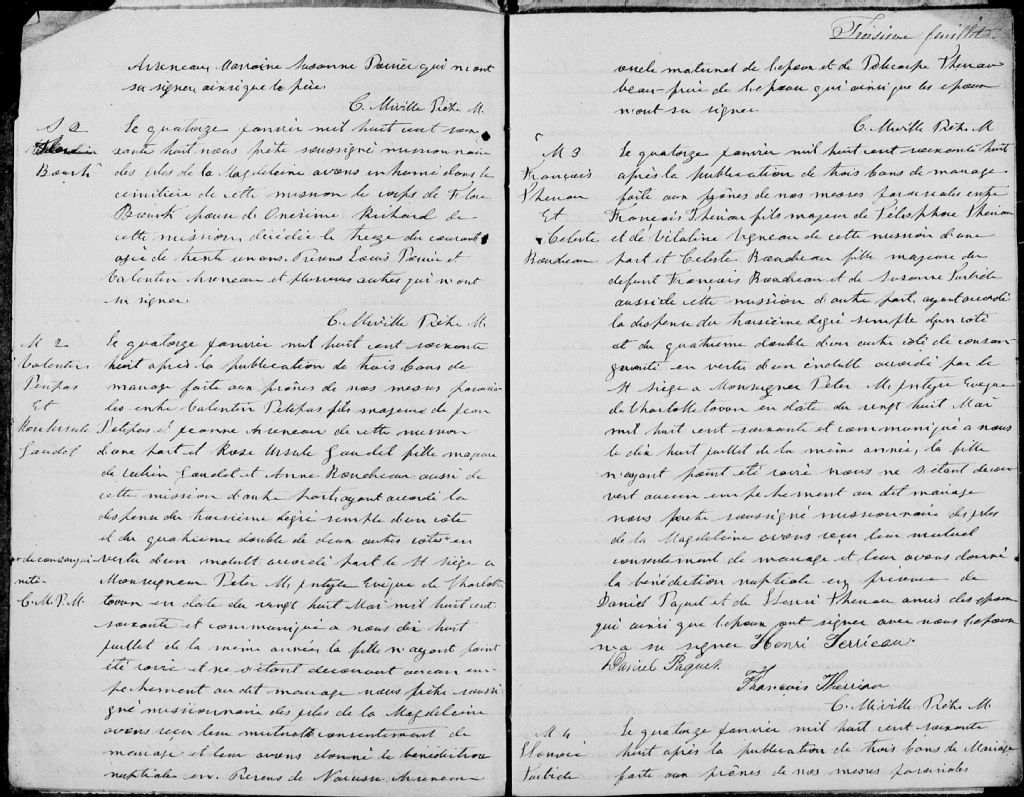 Arseneau, Marraine Suzanne Poirier qui n'ont
su signer, ainsi que le père.
C. Miville Ptre M.
S 2
Bourk
Le quatorze Janvier mil huit cent soix
xante huit nous prêtre soussigné missionnaire
des iles de la Magdeleine avons inhumé dans le
cimitière de cette mission le corps de Flore
Bourk epouse d'Onésime Richard de
cette mission, décédée le treize du courant
agée de trente un ans. Présens Louis Poirier et
Valentin Arseneau et plusieurs autres qui n'ont
su signer
C. Miville Ptre M.
M 2
Valentin
Petipas
Et
Rose Ursule
Gaudet
Le quatorze Janvier mil huit cent soixante
huit après la publication de trois bans de
mariage faite aux prônes de nos messes paroissia
les entre Valentin Petipas fils majeur de Jean
Petipas et Jeanne Arseneau de cette mission
d'une part et Rose Ursule Gaudet fille majeure
de Lubin Gaudet et Anne Boudreau aussi de
cette mission d'autre part, ayant accordé la
dispense du troisième degré simple d'un côté
et du quatrième double de deux autres côtés en
vertu d'un indult accordé part le St Siège a
Monseigneur Peter McIntyre Evêque de Charlotte
town en date du vingt huit Mai mil huit cent
soixante et communiqué a nous dix huit
juillet de la même année, la fille n'ayant point
été voiré et ne s'étant découvert aucun em
pechement au dit mariage nous prêtre soussi
gné missionnaire des iles de la Magdeleine
avons reçu leur mutuel consentement de
mariage et leur avons donné la bénédiction
nuptiale en Présens de Narcisse Arseneau
de consangui
nité
C. M. P. M.
Troisième feuillet.
oncle maternel de l'epoux et de Policarpe Theriau
beau-frère de l'epoux qui ainsi que les epoux
n'ont su signer.
C. Miville Ptre M
M 3
François
Theriau
Et
Celeste
Boudreau
Le quatorze Janvier mil huit cent soixante huit
après la publication de trois bans de mariage
faite aux prônes de nos messes paroissiales entre
François Theriau fils majeur de Télesphore Theriau
et de Vitaline Vigneau de cette mission d'une
part et Celeste Boudreau fille majeure du
défunt François Boudreau et de Suzanne Turbide
aussi de cette mission d'autre part, ayant accordé
la dispense du troisième degré simple d'un côté
et du quatrième double d'un autre côté de consan
guinité en vertu d'un indult accordé par le
St Siège a Monseigneur Peter McIntyre Evêque
de Charlottetown en date du vingt huit Mai
mil huit cent soixante et communiqué a nous
le dix huit juillet de la même année, la fille
n'ayant point été voiré nous ne s'étant décou
vert aucun empechement au dit mariage
nous prêtre soussigné missionnaire des iles
de la Magdeleine avons reçu leur mutuel
consentement de mariage et leur avons donné
la bénédiction nuptiale en présence de
Daniel Paquet et de Henri Theriau amis des epoux
qui ainsi que l'epoux ont signer avec nous l'epouse
n'a su signer Henri Terrieau
Daniel Paquet
François Therriau
C. Miville Ptre M.
M 4
Turbide
Le quatorze Janvier mil huit cent soixante
huit après la publication de trois bans de Mariage
faite aux prônes de nos messes paroissiales